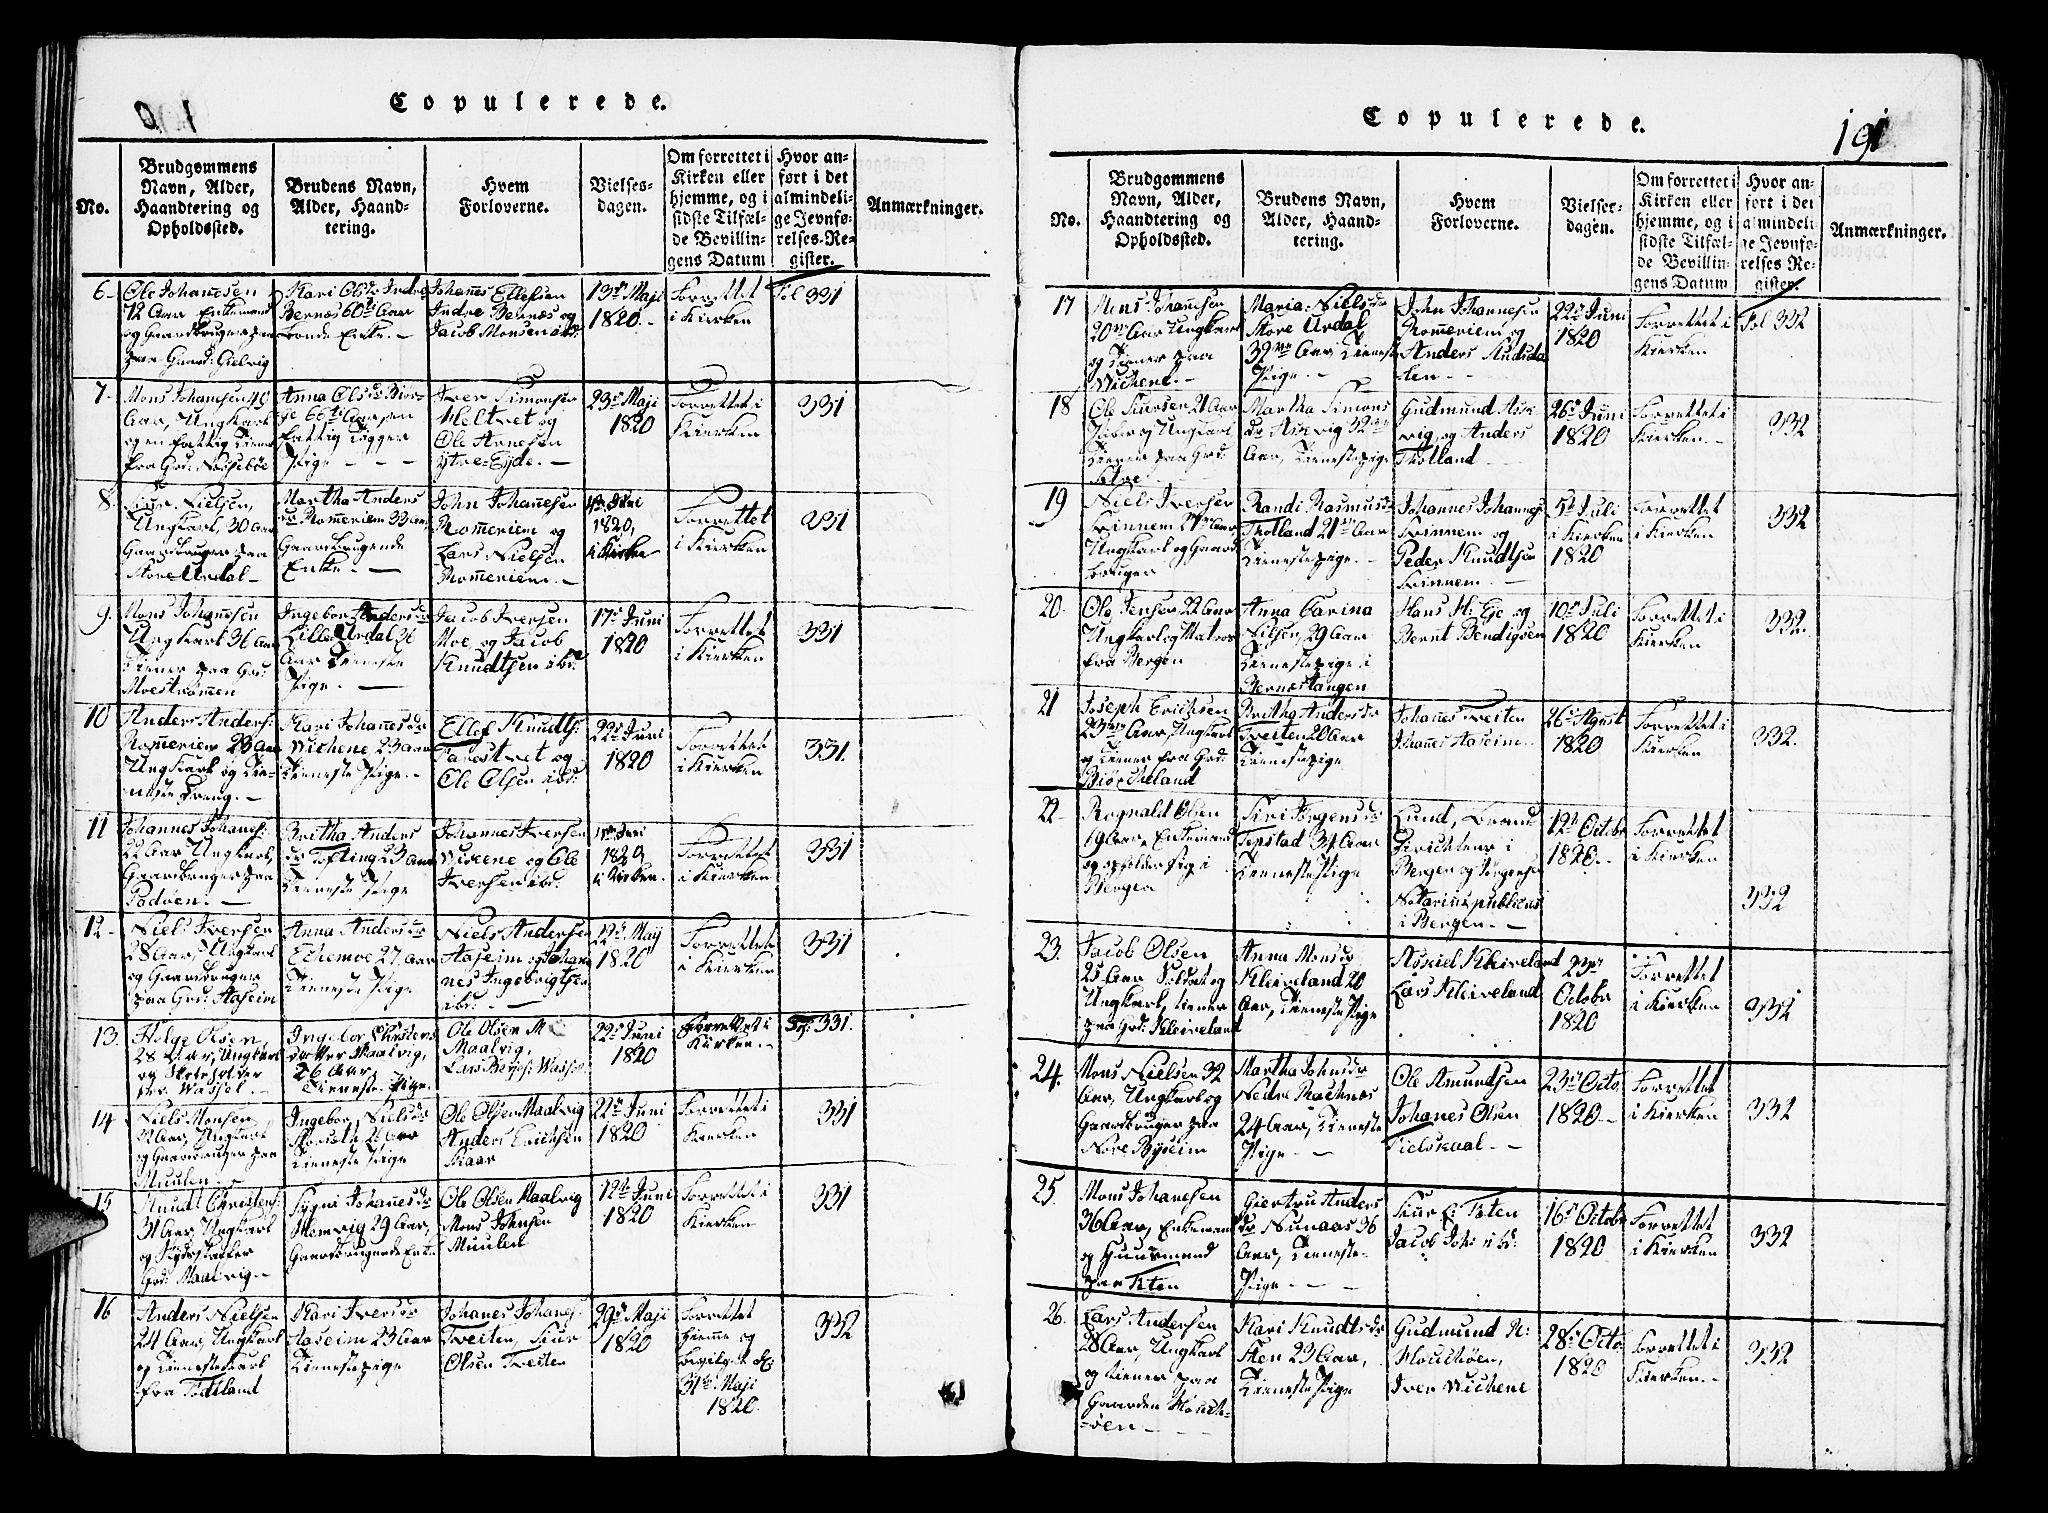 Copulerede.
No.
Brudgommens
Navn, Alder,
Haandtering og
Opholdssted.
Brudens Navn,
Alder, Haand-
tering.
Hvem
Forloverne.
Vielses-
dagen.
Om forrettet i
Kirken eller
hjemme, og i
sidste Tilfæl-
de Bevillin-
gens Datum
Hvor an-
ført i det
almindeli-
ge Jevnfø-
relses-Re-
gister.
Anmærkninger.
6.
Ole Johannesen
72 Aar Enkemand
og Gaardbruger paa
paa Gaard: Gielvig
Kari Olsdr Indre
Bernæs 60 Aar
Enke.
Johanes Ellefsen
Indre Bernæs og
Jacob Monsen ibd:
13de Maji
1820.
Forrettet
i Kierken
Fol 331
7.
Mons Johannesen 49
Aar, Ungkarl
og en fattig Tiener
fra Grd:
Anna Olsdr
66 Aar en
fattig Tigger
Pige
Iver Simonsen
Meltvet og
Ole Arnesen
ytre-Eyde.
23de Maji
1820
Forrettet i
Kierken
331
8.
Siur Nielsen,
Ungkarl, 30 Aar
Gaardbruger paa
Store Urdal
Martha Anders
dr Romeriem 33 Aar
Gaardbrugende
Enke.
John Johannesen
Romeriem og
Lars Nielsen
Romeriem.
Juni
1820,
i Kirken
Forrettet
i Kierken
331
9.
Mons Johannesen
Ungkarl 36 Aar
Tiener paa Grd:
Moestrømen
Ingebor Andersdr
Lille Urdal 26
Aar Tieneste
Pige.
Jacob Iversen
Moe og Jacob
Knudtsen ibd:
17de Juni
1820
Forrettet
i Kierken
331
10
Anders Anders:
Romeriem 23 Aar
Ungkarl og Tie-
neste Dreng.
Kari Johanesdr
Wichene 23 Aar
Tieneste Pige.
Ellef Knudts:
Tarestvet og
Ole Olsen ibd:
22de Juni
1820
Forrettet
i Kierken
331.
11
Johannes Johanes:
22 Aar Ungkarl,
Gaardbruger paa
Padøen.
Britha Anders
dr Tofting 23 Aar
Tieneste Pige
Johannes Iversen
Vikene og Ole
Iversen ibd:
Juni
1820,
i Kirken.
Forrettet
i Kierken
331
12
Niels Iversen
28 Aar, Ungkarl
og Gaardbruger
paa Grd: Aaseim
Anna Andersdr
Echemoe 27 Aar
Tieneste Pige
Niels Andersen
Aaseim og Johan
nes Ingebrigtsen
ibd:
22de Maij
1820
Forrettet
i Kierken
331
13.
Helge Olsen,
28 Aar, Ungkarl
og
Wassel.
Ingebor Christens
datter Maalvig,
26 Aar,
Tieneste Pige.
Ole Olsen M
Maalvig,
Lars Wassel
22de Juni
1820
Forrettet i
Kirken.
331.
14
Niels Monsen
32 Aar, Ungkarl
og Gaardbruger paa
Muulen.
Ingebor Nielsdr
26 Aar
Tieneste Pige
Ole Olsen Maalvig
Anders Erichsen
22de Juni
1820
Forrettet i
Kierken
331
15
Knud Christens:
31 Aar, Ungkarl
og
Grd: Maalvig
Sygni Johanesdr
Hemvig 29 Aar,
Gaardbrugende Enk:
Ole Olsen Maalvig
Mons Johnsen
Muulen
12te Juni
1820
Forrettet i
Kierken
331
16
Anders Nielsen
24 Aar, Ungkarl
og Tienestekarl
fra Titland
Kari Iversdr
Aaseim 23 Aar
Tienestepige
Johanes Johanes:
Treiten, Siur
Olsen Treiten
29de Maji
1820
Forrettet
hjeme og
bevilget d:
31te Maji
1820.
332
Copulerede.
191
No.
Brudgommens
Navn, Alder,
Haandtering og
Opholdssted.
Brudens Navn,
Alder, Haand-
tering.
Hvem
Forloverne.
Vielses-
dagen.
Om forrettet i
Kirken eller
hjemme, og i
sidste Tilfæl-
de Bevillin-
gens Datum
Hvor an-
ført i det
almindeli-
ge Jevnfø-
relses Re-
gister.
Anmærkninger.
17
Mons Johannesen
20 Aar Ungkarl
og Tiener paa
Wichene.
Maria Nielsdr
Store Urdal
32 Aar Tieneste
Pige.
John Johannesen
Romeriem og
Anders
22de Juni
1820
Forrettet i
Kierken
Fol 332
18
Ole Siursen 21 Aar
og Ungkarl
Tiener paa Grd:
Martha Simons
dr 32
Aar, Tienestepige
Gudmund
og Anders
Tholland
26de Juni
1820
Forrettet i
Kierken.
332
19
Niels Iversen
Frinnem 27 Aar
Ungkarl og Gaard
bruger
Randi Rasmusdr
Tholland 21 Aar
Tienestepige.
Johannes Johannes
Frinnem og
Peder Knudtsen
Frinnem.
5te Juli
i Kirken
1820
Forrettet
i Kierken
332
20.
Ole Jensen 22 Aar
Ungkarl og Matros
fra Bergen
Anna Carina
Nilsen, 29 Aar
Tienestepige i
Bernæstangen
Hans H: Eje og
Bernt Bendigsen
10de Juli
1820
Forrettet i
Kierken
332.
21
Joseph Erichsen
23 Aar, Ungkarl
og Tiener fra Grd:
Biørckeland
Britha Andersdr
Treiten 20 Aar
Tienestepige
Johanes Treiten
Johanes Aaseim.
26de Agust
1820
Forrettet i
Kierken
332.
22
Rognald Olsen
Aar, Enkemand
og opholder sig i
Bergen
Siri Jørgensdr
Tepstad 34 Aar
Tienestepige
Lund, Brand
Directeur i
Bergen og Jørgensen
Notarius publicus
i Bergen.
12te Octobr
1820.
Forrettet
i Kierken
332
23.
Jacob Olsen
25 Aar Soldat og
Ungkarl, tiener
paa Grd: Kleiveland
Anna Monsdr
Kleiveland 20
Aar, Tieneste Pige
Askiel Kleiveland
Lars Kleiveland
23de
Octobr
1820
Forrettet
i Kierken
332
24.
Mons Nielsen 32
Aar, Ungkarl og
Gaardbruger paa
Nore Byseim
Martha Johnsdr
Nedre Bachnæs
24 Aar, Tieneste
Pige.
Ole Amundsen
Johanes Olsen
Fielskaal.
23de Octo
1820.
Forrettet
i Kierken
332
25.
Mons Johanesen
36 Aar, Enkemand
og Huusmand
paa Teten
Giertru Anders
dr Nunaas 36
Aar, Tieneste-
Pige.
Siur E: Teten
Jacob Joh: ibd:
16de Octobr
1820
Forrettet
i Kierken
332
26.
Lars Andersen
28 Aar, Ungkarl
og tiener paa
Gaarden Mouch-
-øen.
Kari Knudtsdr
Sten 23 Aar,
Tieneste Pige
Gudmund K:
Mouchøen,
Iver Wichene
28de Octo
1820
Forrettet i
Kierken.
332